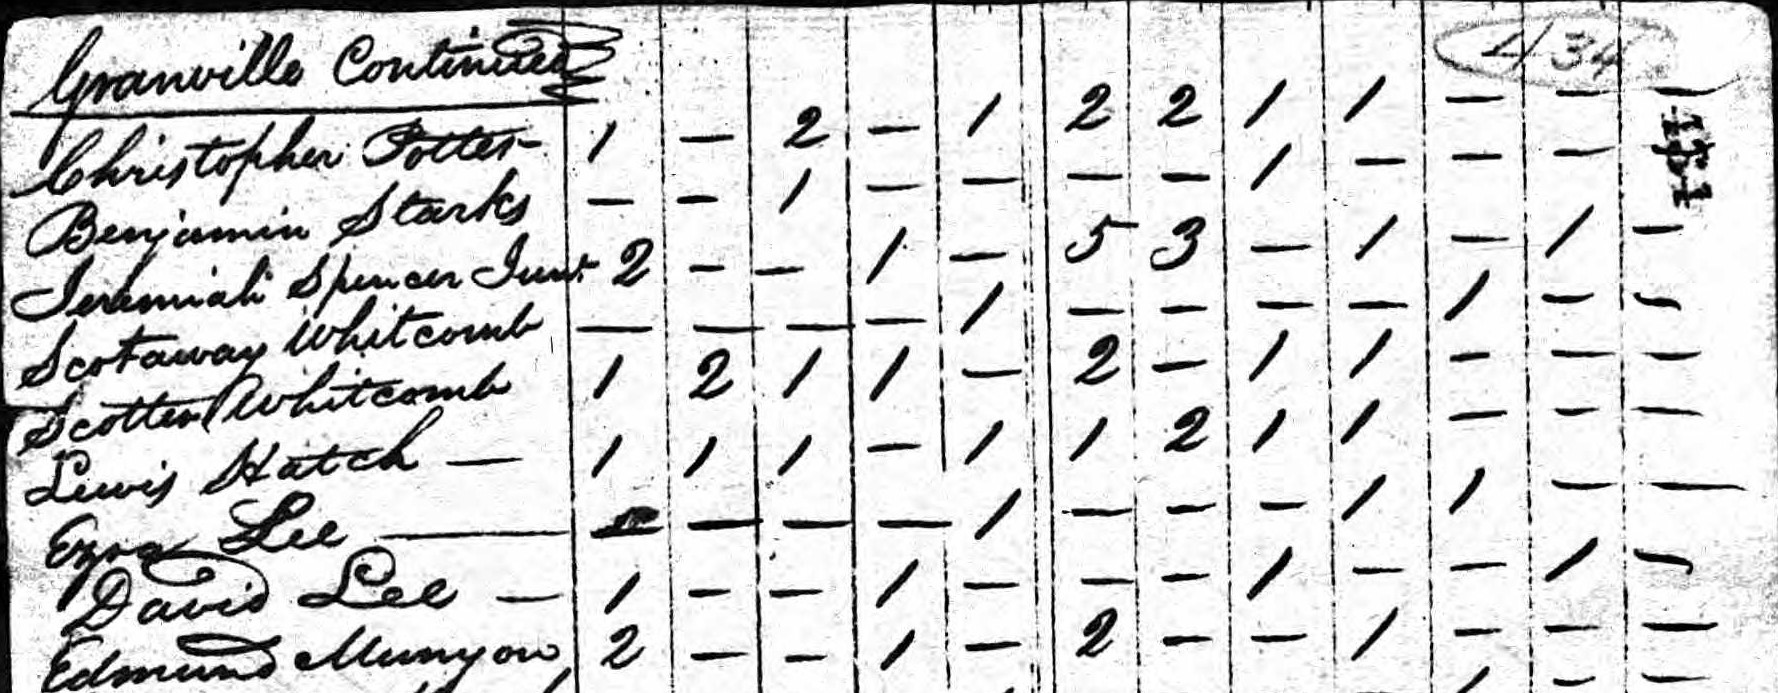 Granville Continued
434
151
Christopher Potter 1 — 2 — 1 2 2 1 1 — — —
Benjamin Starks — — 1 — — — — 1 — — —
Jeremiah Spencer Junr 2 — — 1 — 5 3 — 1 — 1 —
Scotaway Whitcomb — — — — 1 — — — — 1 — —
Scotten Whitcomb 1 2 1 1 — 2 — 1 1 — — —
Lewis Hatch — 1 1 1 — 1 1 2 1 1 — — —
Ezra Lee — — — — — 1 — — — 1 1 — —
David Lee — 1 — — 1 — — — 1 — — 1 —
Edmund Munyon 2 — — 1 — 2 — — 1 — — —